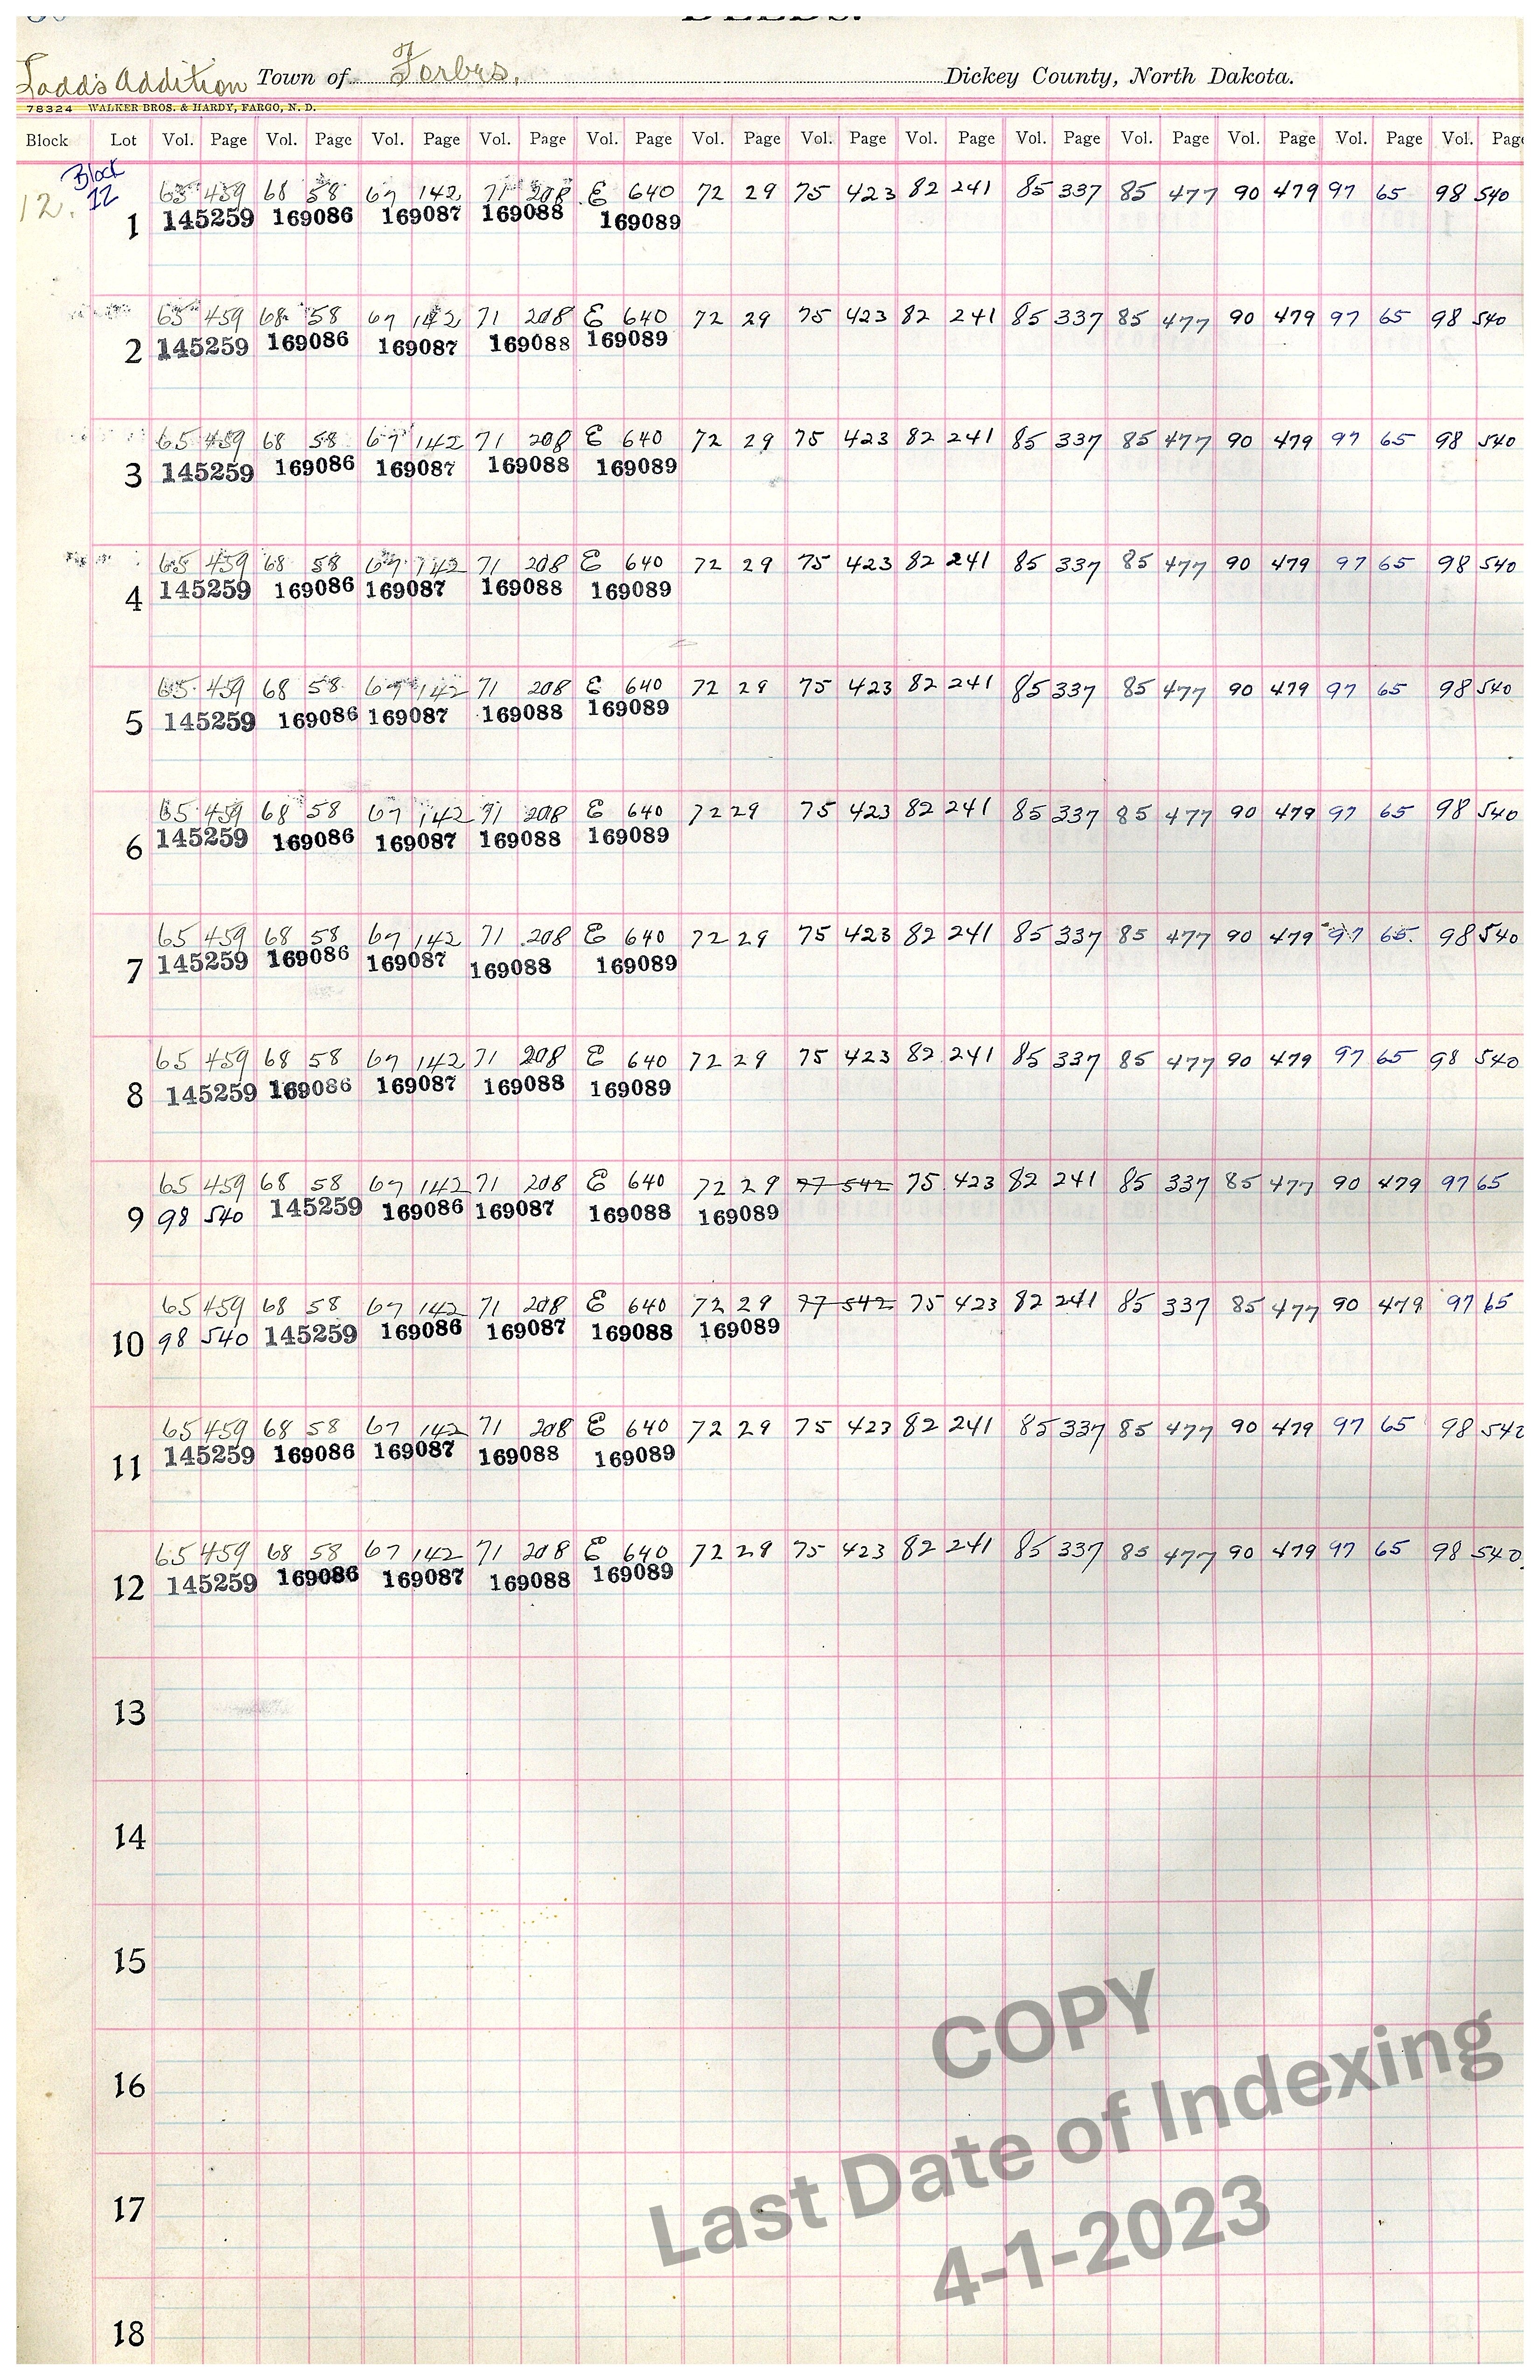 Ladd's Addition Town of Forbes. Dickey County, North Dakota.
78324 WALKER BROS. & HARDY, FARGO, N. D.
Block Lot Vol. Page Vol. Page Vol. Page Vol. Page Vol. Page Vol. Page Vol. Page Vol. Page Vol. Page Vol. Page Vol. Page Vol. Page Vol. Page
Block
12. 12 65 459 68 58 67 142 71 208 E 640 72 29 75 423 82 241 85 337 85 477 90 479 97 65 98 540
1 145259 169086 169087 169088 169089
65 459 68 58 67 142 71 208 E 640 72 29 75 423 82 241 85 337 85 477 90 479 97 65 98 540
2 145259 169086 169087 169088 169089
65 459 68 58 67 142 71 208 E 640 72 29 75 423 82 241 85 337 85 477 90 479 97 65 98 540
3 145259 169086 169087 169088 169089
65 459 68 58 67 142 71 208 E 640 72 29 75 423 82 241 85 337 85 477 90 479 97 65 98 540
4 145259 169086 169087 169088 169089
65 459 68 58 67 142 71 208 E 640 72 29 75 423 82 241 85 337 85 477 90 479 97 65 98 540
5 145259 169086 169087 169088 169089
65 459 68 58 67 142 71 208 E 640 72 29 75 423 82 241 85 337 85 477 90 479 97 65 98 540
6 145259 169086 169087 169088 169089
65 459 68 58 67 142 71 208 E 640 72 29 75 423 82 241 85 337 85 477 90 479 97 65 98 540
7 145259 169086 169087 169088 169089
65 459 68 58 67 142 71 208 E 640 72 29 75 423 82 241 85 337 85 477 90 479 97 65 98 540
8 145259 169086 169087 169088 169089
65 459 68 58 67 142 71 208 E 640 72 29 77 542 75 423 82 241 85 337 85 477 90 479 97 65
9 98 540 145259 169086 169087 169088 169089
65 459 68 58 67 142 71 208 E 640 72 29 77 542 75 423 82 241 85 337 85 477 90 479 97 65
10 98 540 145259 169086 169087 169088 169089
65 459 68 58 67 142 71 208 E 640 72 29 75 423 82 241 85 337 85 477 90 479 97 65 98 540
11 145259 169086 169087 169088 169089
65 459 68 58 67 142 71 208 E 640 72 29 75 423 82 241 85 337 85 477 90 479 97 65 98 540
12 145259 169086 169087 169088 169089
13
14
15
16
17
18
COPY
Last Date of Indexing
4-1-2023